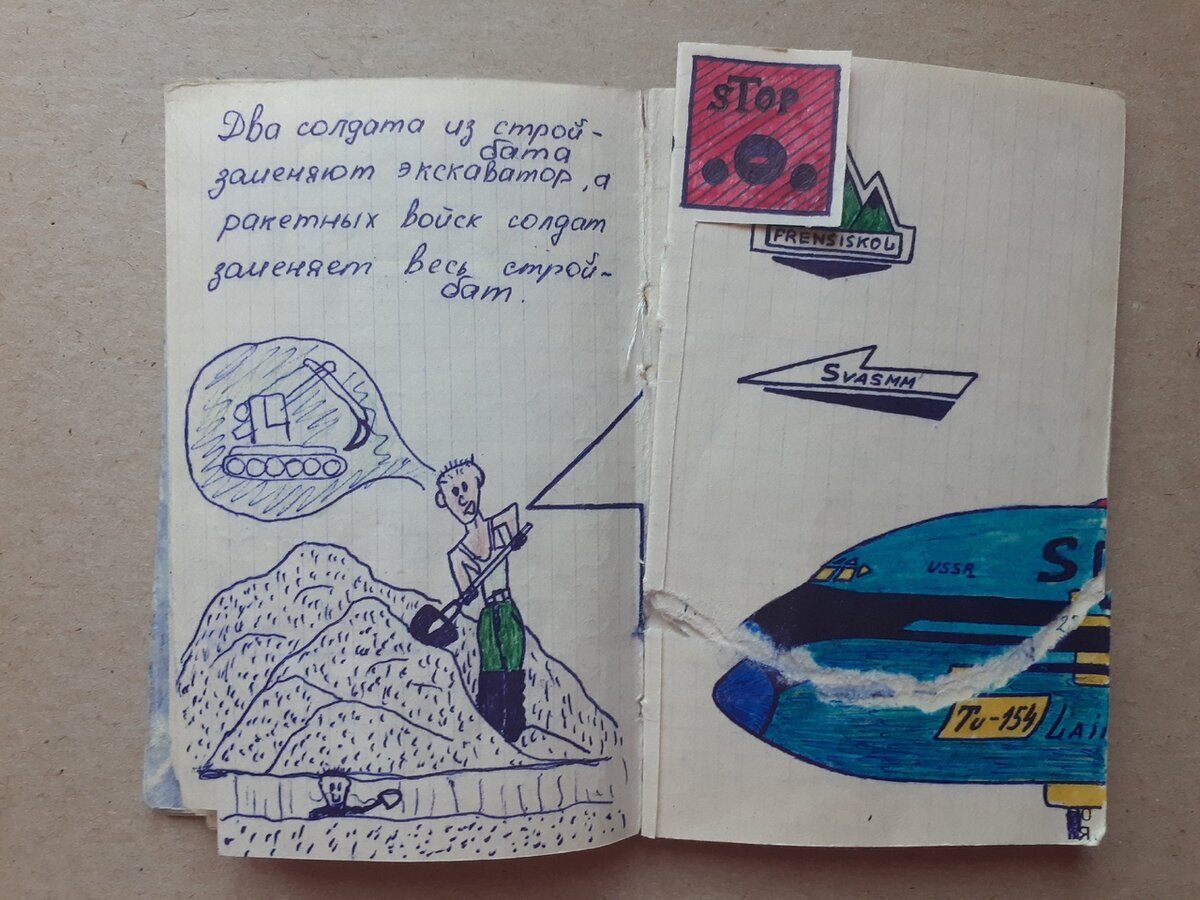 Два солдата из строй-
бата
заменяют экскаватор, а
ракетных войск солдат
заменяет весь строй-
бат.
STOP
FRENSISKOU
SVASMM
USSR
S
Tu-154